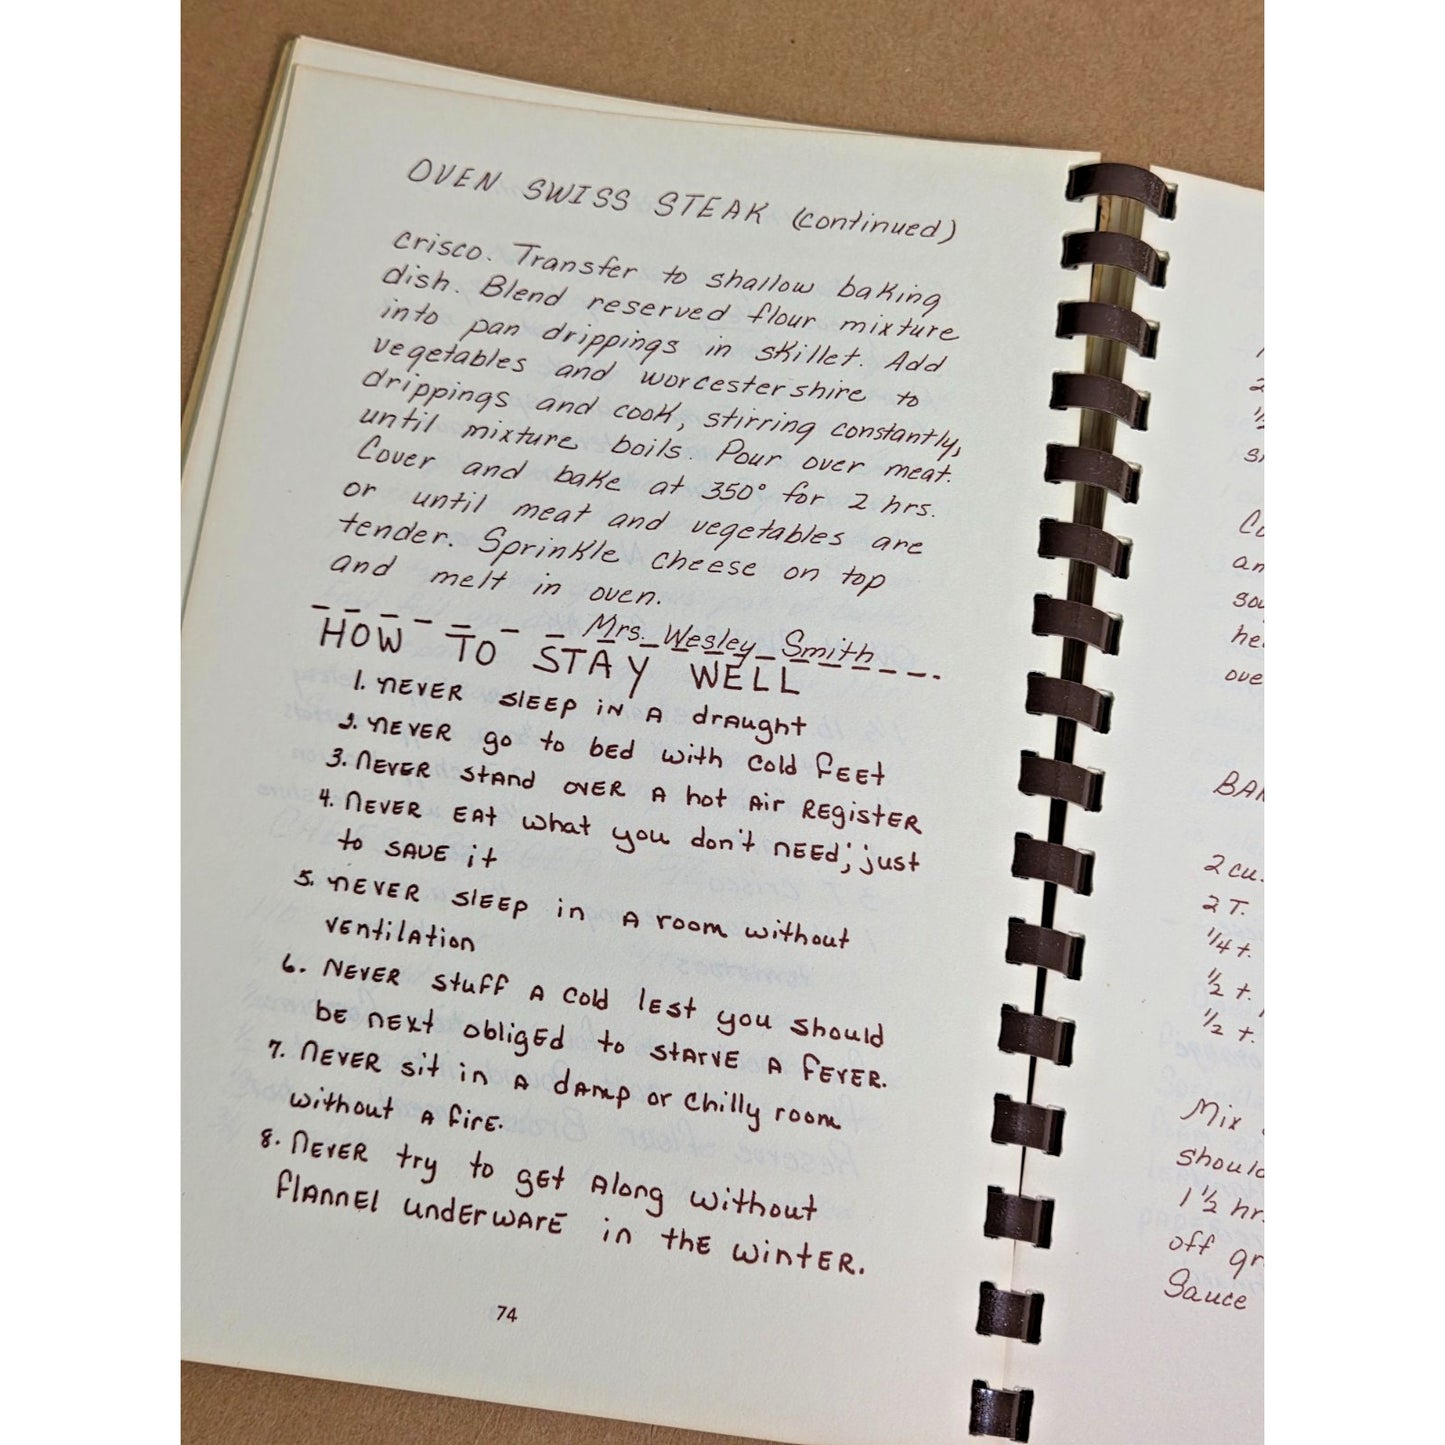 OVEN SWISS STEAK (continued)
crisco. Transfer to shallow baking
dish. Blend reserved flour mixture
into pan drippings in skillet. Add
vegetables and worcestershire to
drippings and cook, stirring constantly,
until mixture boils. Pour over meat.
Cover and bake at 350° for 2 hrs.
or until meat and vegetables are
tender. Sprinkle cheese on top
and melt in oven.
Mrs. Wesley Smith
HOW TO STAY WELL
1. NEVER SLEEP IN A drAught
2. NEVER go to bEd with cold fEEt
3. NEVER stANd OVER A hot AiR REgistER
4. NEVER EAt whAt you don't NEEd; just
to SAVE it
5. NEVER SLEEP in A room without
VENtilAtion
6. NEVER stuff A cold lEst you should
bE NEXt obligEd to stArVE A fEVER.
7. NEVER sit in A dAmp or chilly room
without A firE.
8. NEVER try to gEt Along without
flANNEl undErwArE in thE wintER.
74
BAN
2 cu.
2 T.
1/4 t.
1/2 t.
1/2 t.
Mix
should
1 1/2 hr.
off gr
Sauce